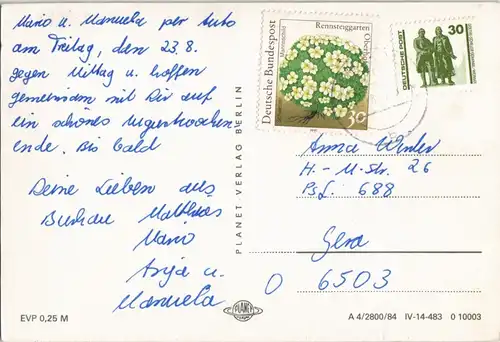 Mario u. Manuela per Auto
am Freitag, den 23.8.
gegen Mittag u. hoffen
gemeinsam mit Dir auf
ein schönes
ende. Bis bald
Deine Lieben aus
Mathias
Mario
Anja u.
Manuela
EVP 0,25 M
PLANET VERLAG BERLIN
Deutsche Bundespost
Rennsteiggarten
Oberhof
30
DEUTSCHE POST
30
Anna
H.-M-Str. 26
Psf. 688
Gera
O 6503
PLANET
A 4/2800/84 IV-14-483 0 10003